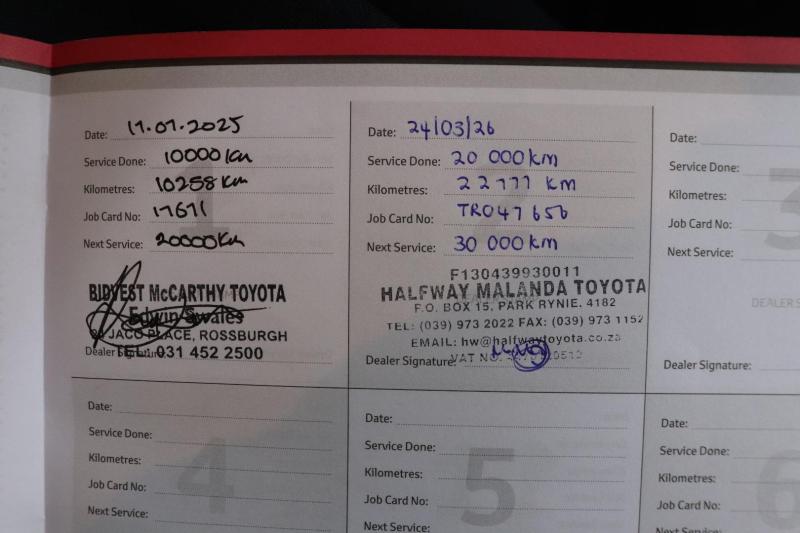 Date: 17.07.2025
Service Done: 10000Km
Kilometres: 10258 Km
Job Card No: 17671
Next Service: 20000Km
1
BIDVEST McCARTHY TOYOTA
Edwin Swales
JACO PLACE, ROSSBURGH
Dealer Signature:
TEL: 031 452 2500
Date: 24/03/26
Service Done: 20 000km
Kilometres: 22 777 KM
Job Card No: TR047656
Next Service: 30 000km
F130439930011
HALFWAY MALANDA TOYOTA
P.O. BOX 15, PARK RYNIE, 4182
TEL: (039) 973 2022 FAX: (039) 973 1152
EMAIL: hw@halfwaytoyota.co.za
Dealer Signature:
VAT NO.
Date:
Service Done:
Kilometres:
Job Card No:
Next Service:
3
DEALER S
Dealer Signature:
Date:
Service Done:
Kilometres:
Job Card No:
Next Service:
4
Date:
Service Done:
Kilometres:
Job Card No:
Next Service:
5
Date:
Service Done:
Kilometres:
Job Card No:
Next Service:
6